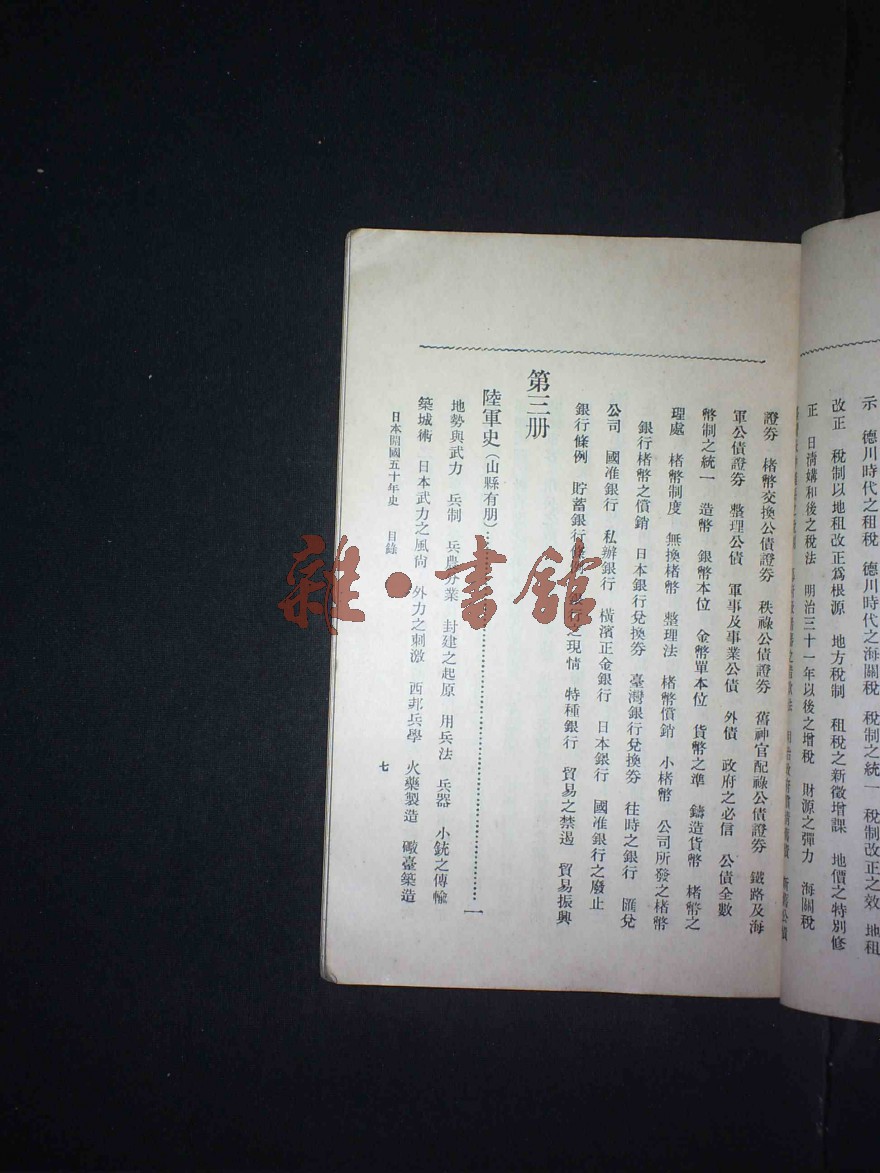 示　德川時代之租稅　德川時代之海關稅　稅制之統一　稅制改正之效　地租
改正　稅制以地租改正爲根源　地方稅制　租稅之新徵增課　地價之特別修
正　日淸媾和後之稅法　明治三十一年以後之增稅　財源之彈力　海關稅
證券　楮幣交換公債證券　秩祿公債證券　舊神官配祿公債證券　鐵路及海
軍公債證券　整理公債　軍事及事業公債　外債　政府之必信　公債全數
幣制之統一　造幣　銀幣本位　金幣單本位　貨幣之準　鑄造貨幣　楮幣之
理處　楮幣制度　無換楮幣　整理法　楮幣償銷　小楮幣　公司所發之楮幣
銀行楮幣之償銷　日本銀行兌換券　臺灣銀行兌換券　往時之銀行　匯兌
公司　國准銀行　私辦銀行　橫濱正金銀行　日本銀行　國准銀行之廢止
銀行條例　貯蓄銀行條例　銀行之現情　特種銀行　貿易之禁遏　貿易振興
第三册
陸軍史（山縣有朋）…………………一
地勢與武力　兵制　兵農分業　封建之起原　用兵法　兵器　小銃之傳輸
築城術　日本武力之風尙　外力之刺激　西邦兵學　火藥製造　礮臺築造
日本開國五十年史　目錄　七
雜·書館